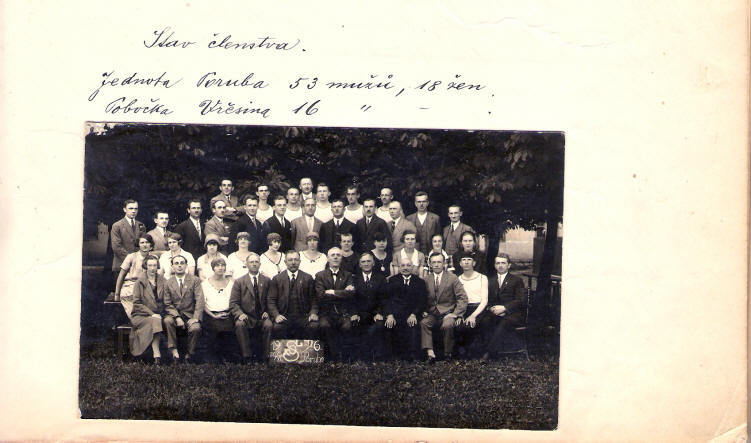 Stav členstva.
Jednota Poruba 53 mužů, 18 žen.
Pobočka Vřesina 16 " -
19 26
Poruba